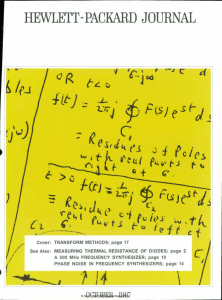 HEWLETT-PACKARD JOURNAL
σ-j∞
bles
OR t<0
f(t) = 1/2πj ∮ F(s)e^st ds
jω)
C₁
= Residues of Poles
with real parts to
right of σ.
t > 0 f(t) = 1/2πj ∮ F(s)e^st ds
= Residue of Poles with
C₂ real parts to left of
σ.
Cover: TRANSFORM METHODS; page 17
See Also: MEASURING THERMAL RESISTANCE OF DIODES; page 2
A 500 MHz FREQUENCY SYNTHESIZER; page 10
PHASE NOISE IN FREQUENCY SYNTHESIZERS; page 14
OCTOBER 1967